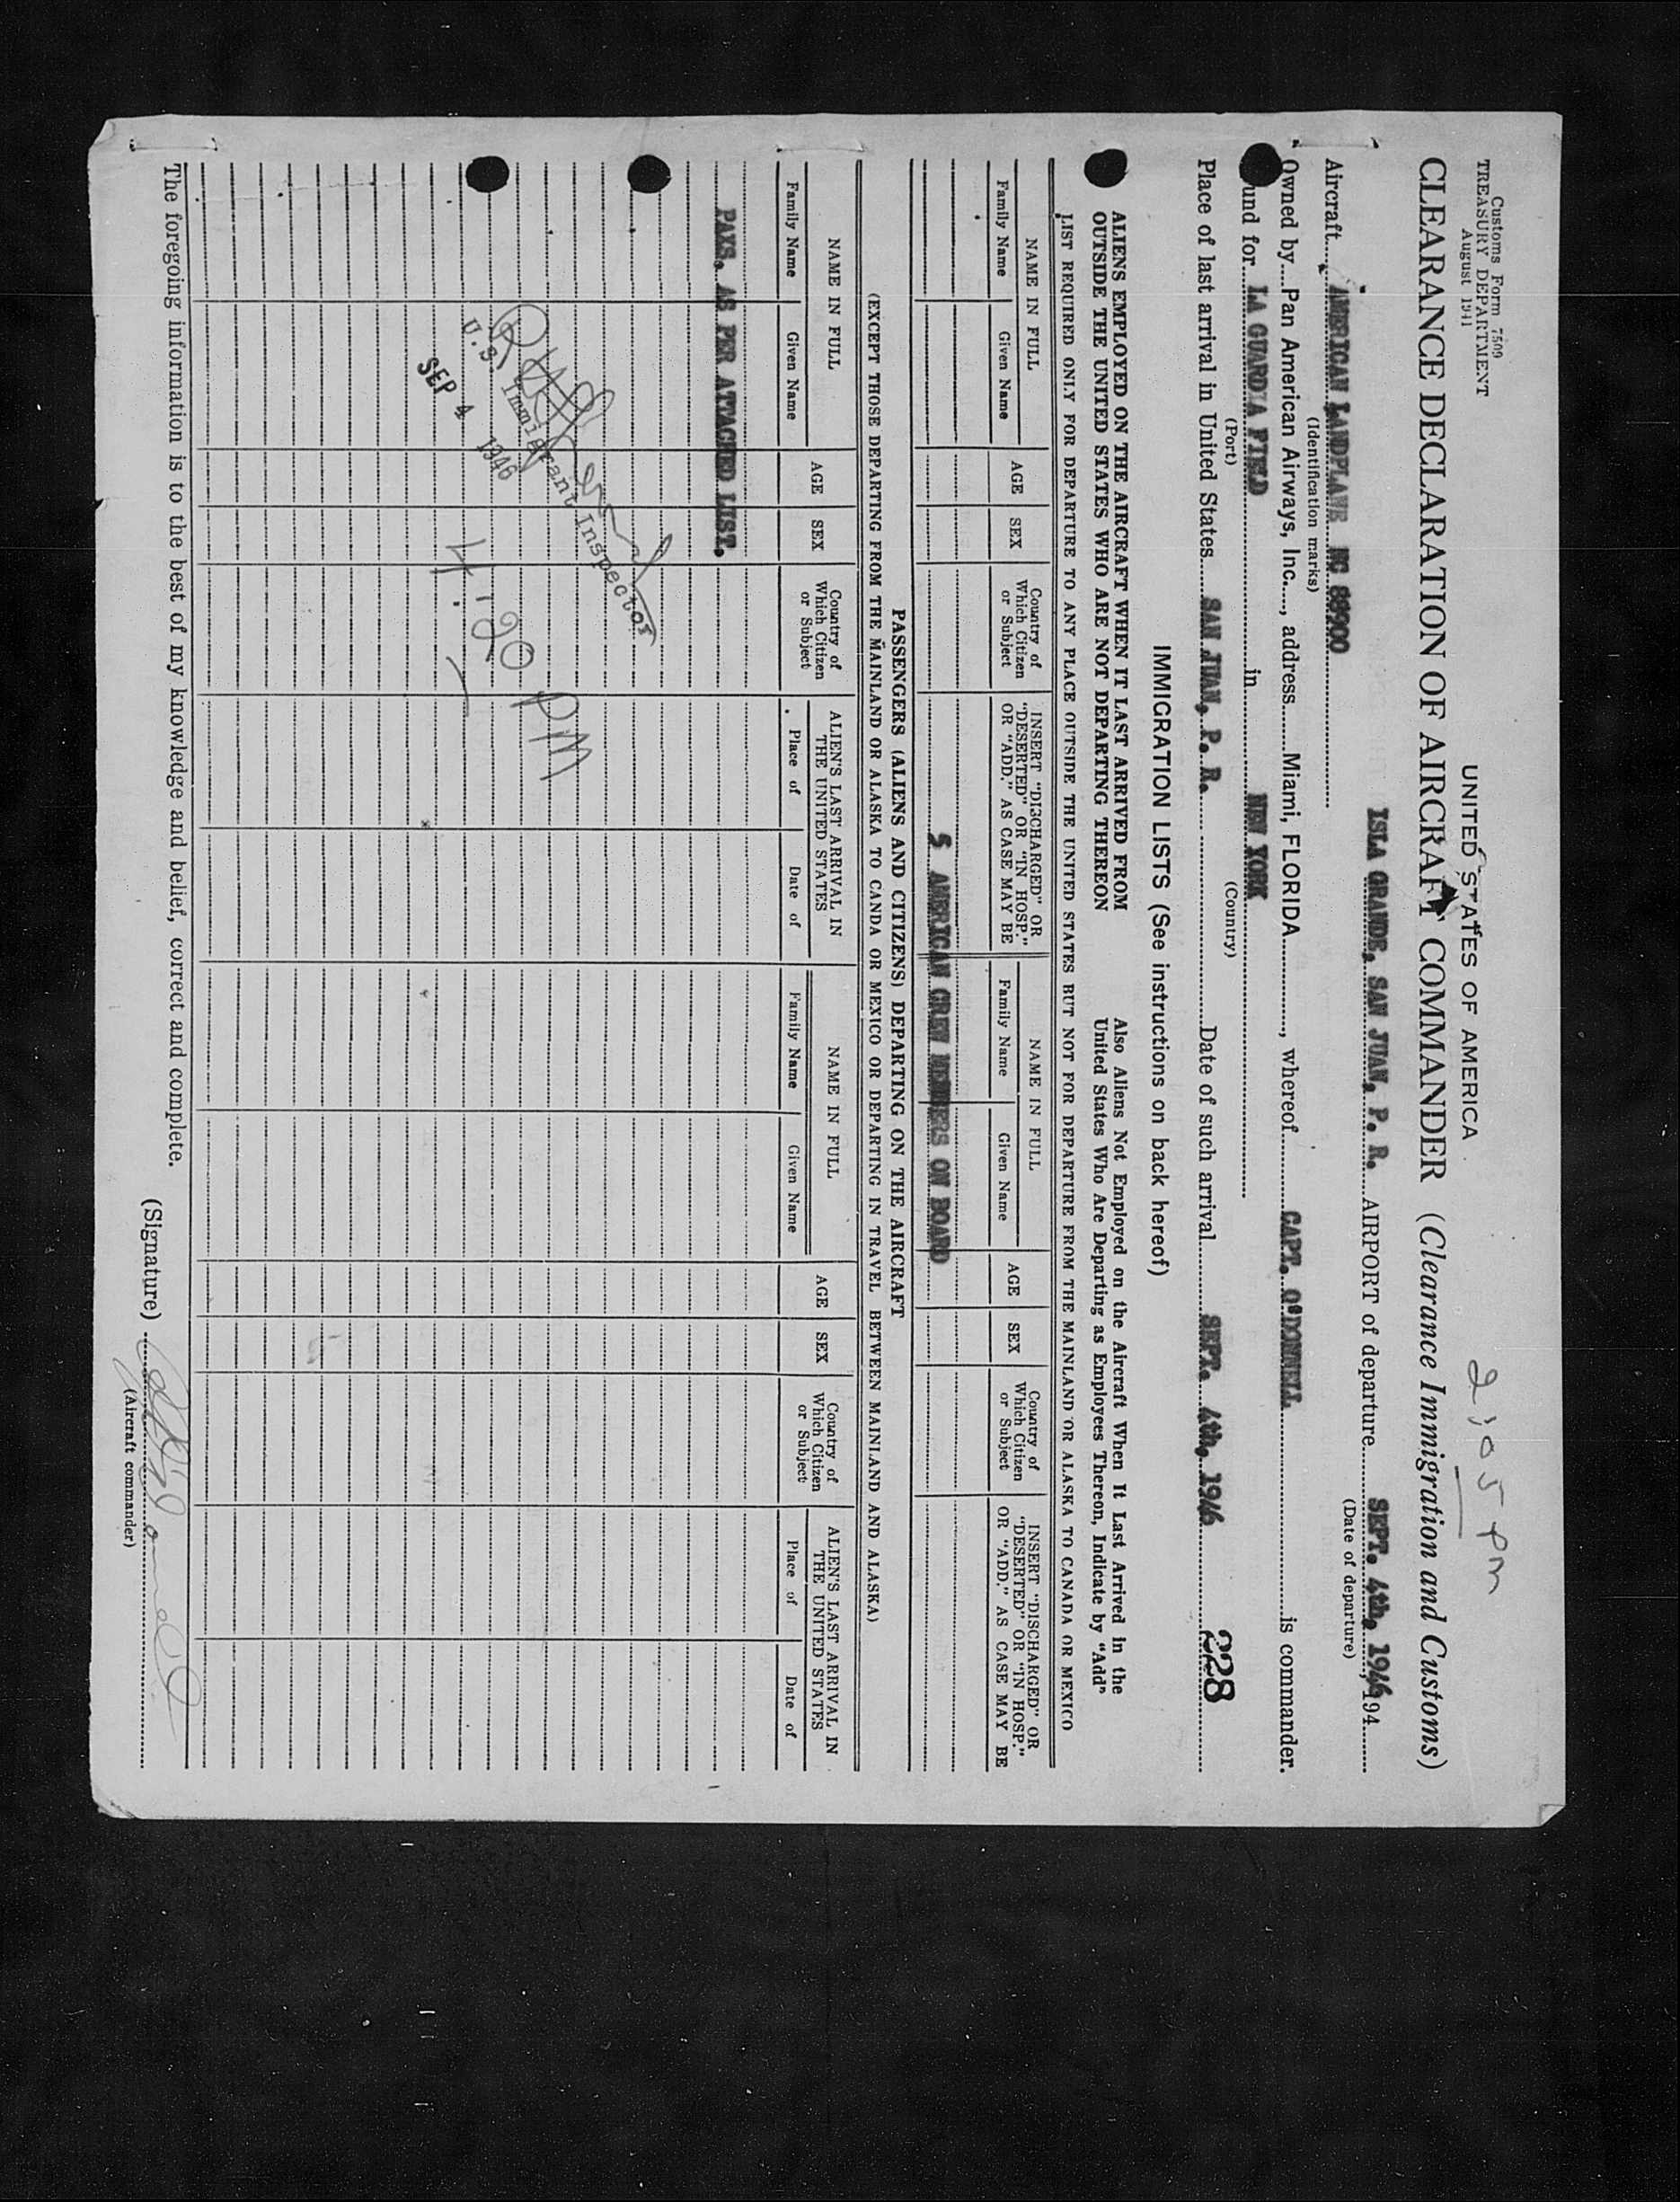 Customs Form 7509
TREASURY DEPARTMENT
August 1941
UNITED STATES OF AMERICA
2:05 pm
CLEARANCE DECLARATION OF AIRCRAFT COMMANDER (Clearance Immigration and Customs)
ISLA GRANDE, SAN JUAN, P. R. AIRPORT of departure SEPT. 4th, 1946, 194
(Date of departure)
Aircraft AMERICAN LANDPLANE NC 88900
(Identification marks)
Owned by Pan American Airways, Inc., address Miami, FLORIDA, whereof CAPT. O'DONNELL is commander.
und for LA GUARDIA FIELD in NEW YORK
(Port) (Country)
Place of last arrival in United States SAN JUAN, P. R. Date of such arrival SEPT. 4th, 1946 228
IMMIGRATION LISTS (See instructions on back hereof)
ALIENS EMPLOYED ON THE AIRCRAFT WHEN IT LAST ARRIVED FROM
OUTSIDE THE UNITED STATES WHO ARE NOT DEPARTING THEREON
Also Aliens Not Employed on the Aircraft When It Last Arrived in the
United States Who Are Departing as Employees Thereon, Indicate by "Add"
LIST REQUIRED ONLY FOR DEPARTURE TO ANY PLACE OUTSIDE THE UNITED STATES BUT NOT FOR DEPARTURE FROM THE MAINLAND OR ALASKA TO CANADA OR MEXICO
NAME IN FULL
Family Name Given Name
AGE
SEX
Country of
Which Citizen
or Subject
INSERT "DISCHARGED" OR
"DESERTED" OR "IN HOSP."
OR "ADD." AS CASE MAY BE
NAME IN FULL
Family Name Given Name
AGE
SEX
Country of
Which Citizen
or Subject
INSERT "DISCHARGED" OR
"DESERTED" OR "IN HOSP."
OR "ADD." AS CASE MAY BE
5 AMERICAN CREW MEMBERS ON BOARD
PASSENGERS (ALIENS AND CITIZENS) DEPARTING ON THE AIRCRAFT
(EXCEPT THOSE DEPARTING FROM THE MAINLAND OR ALASKA TO CANDA OR MEXICO OR DEPARTING IN TRAVEL BETWEEN MAINLAND AND ALASKA)
NAME IN FULL
Family Name Given Name
AGE
SEX
Country of
Which Citizen
or Subject
ALIEN'S LAST ARRIVAL IN
THE UNITED STATES
Place of Date of
NAME IN FULL
Family Name Given Name
AGE
SEX
Country of
Which Citizen
or Subject
ALIEN'S LAST ARRIVAL IN
THE UNITED STATES
Place of Date of
PAXS. AS PER ATTACHED LIST.
U.S. Immigrant Inspector
SEP 4 1946
4:20 PM
The foregoing information is to the best of my knowledge and belief, correct and complete.
(Signature)
(Aircraft commander)